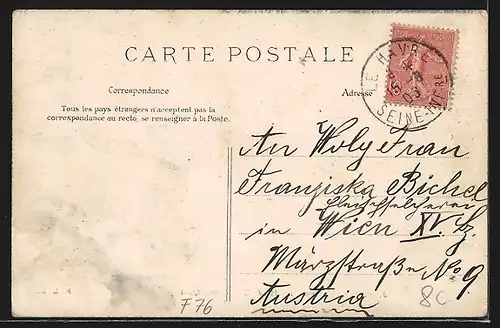 CARTE POSTALE
Correspondance
Adresse
Tous les pays étrangers n'acceptent pas la
correspondance au recto, se renseigner à la Poste.
LE HAVRE
SEINE-INFRE
An
Franziska Bichel
in Wien XV. Bz.
Märzstraße No 9.
Austria
F76
8C